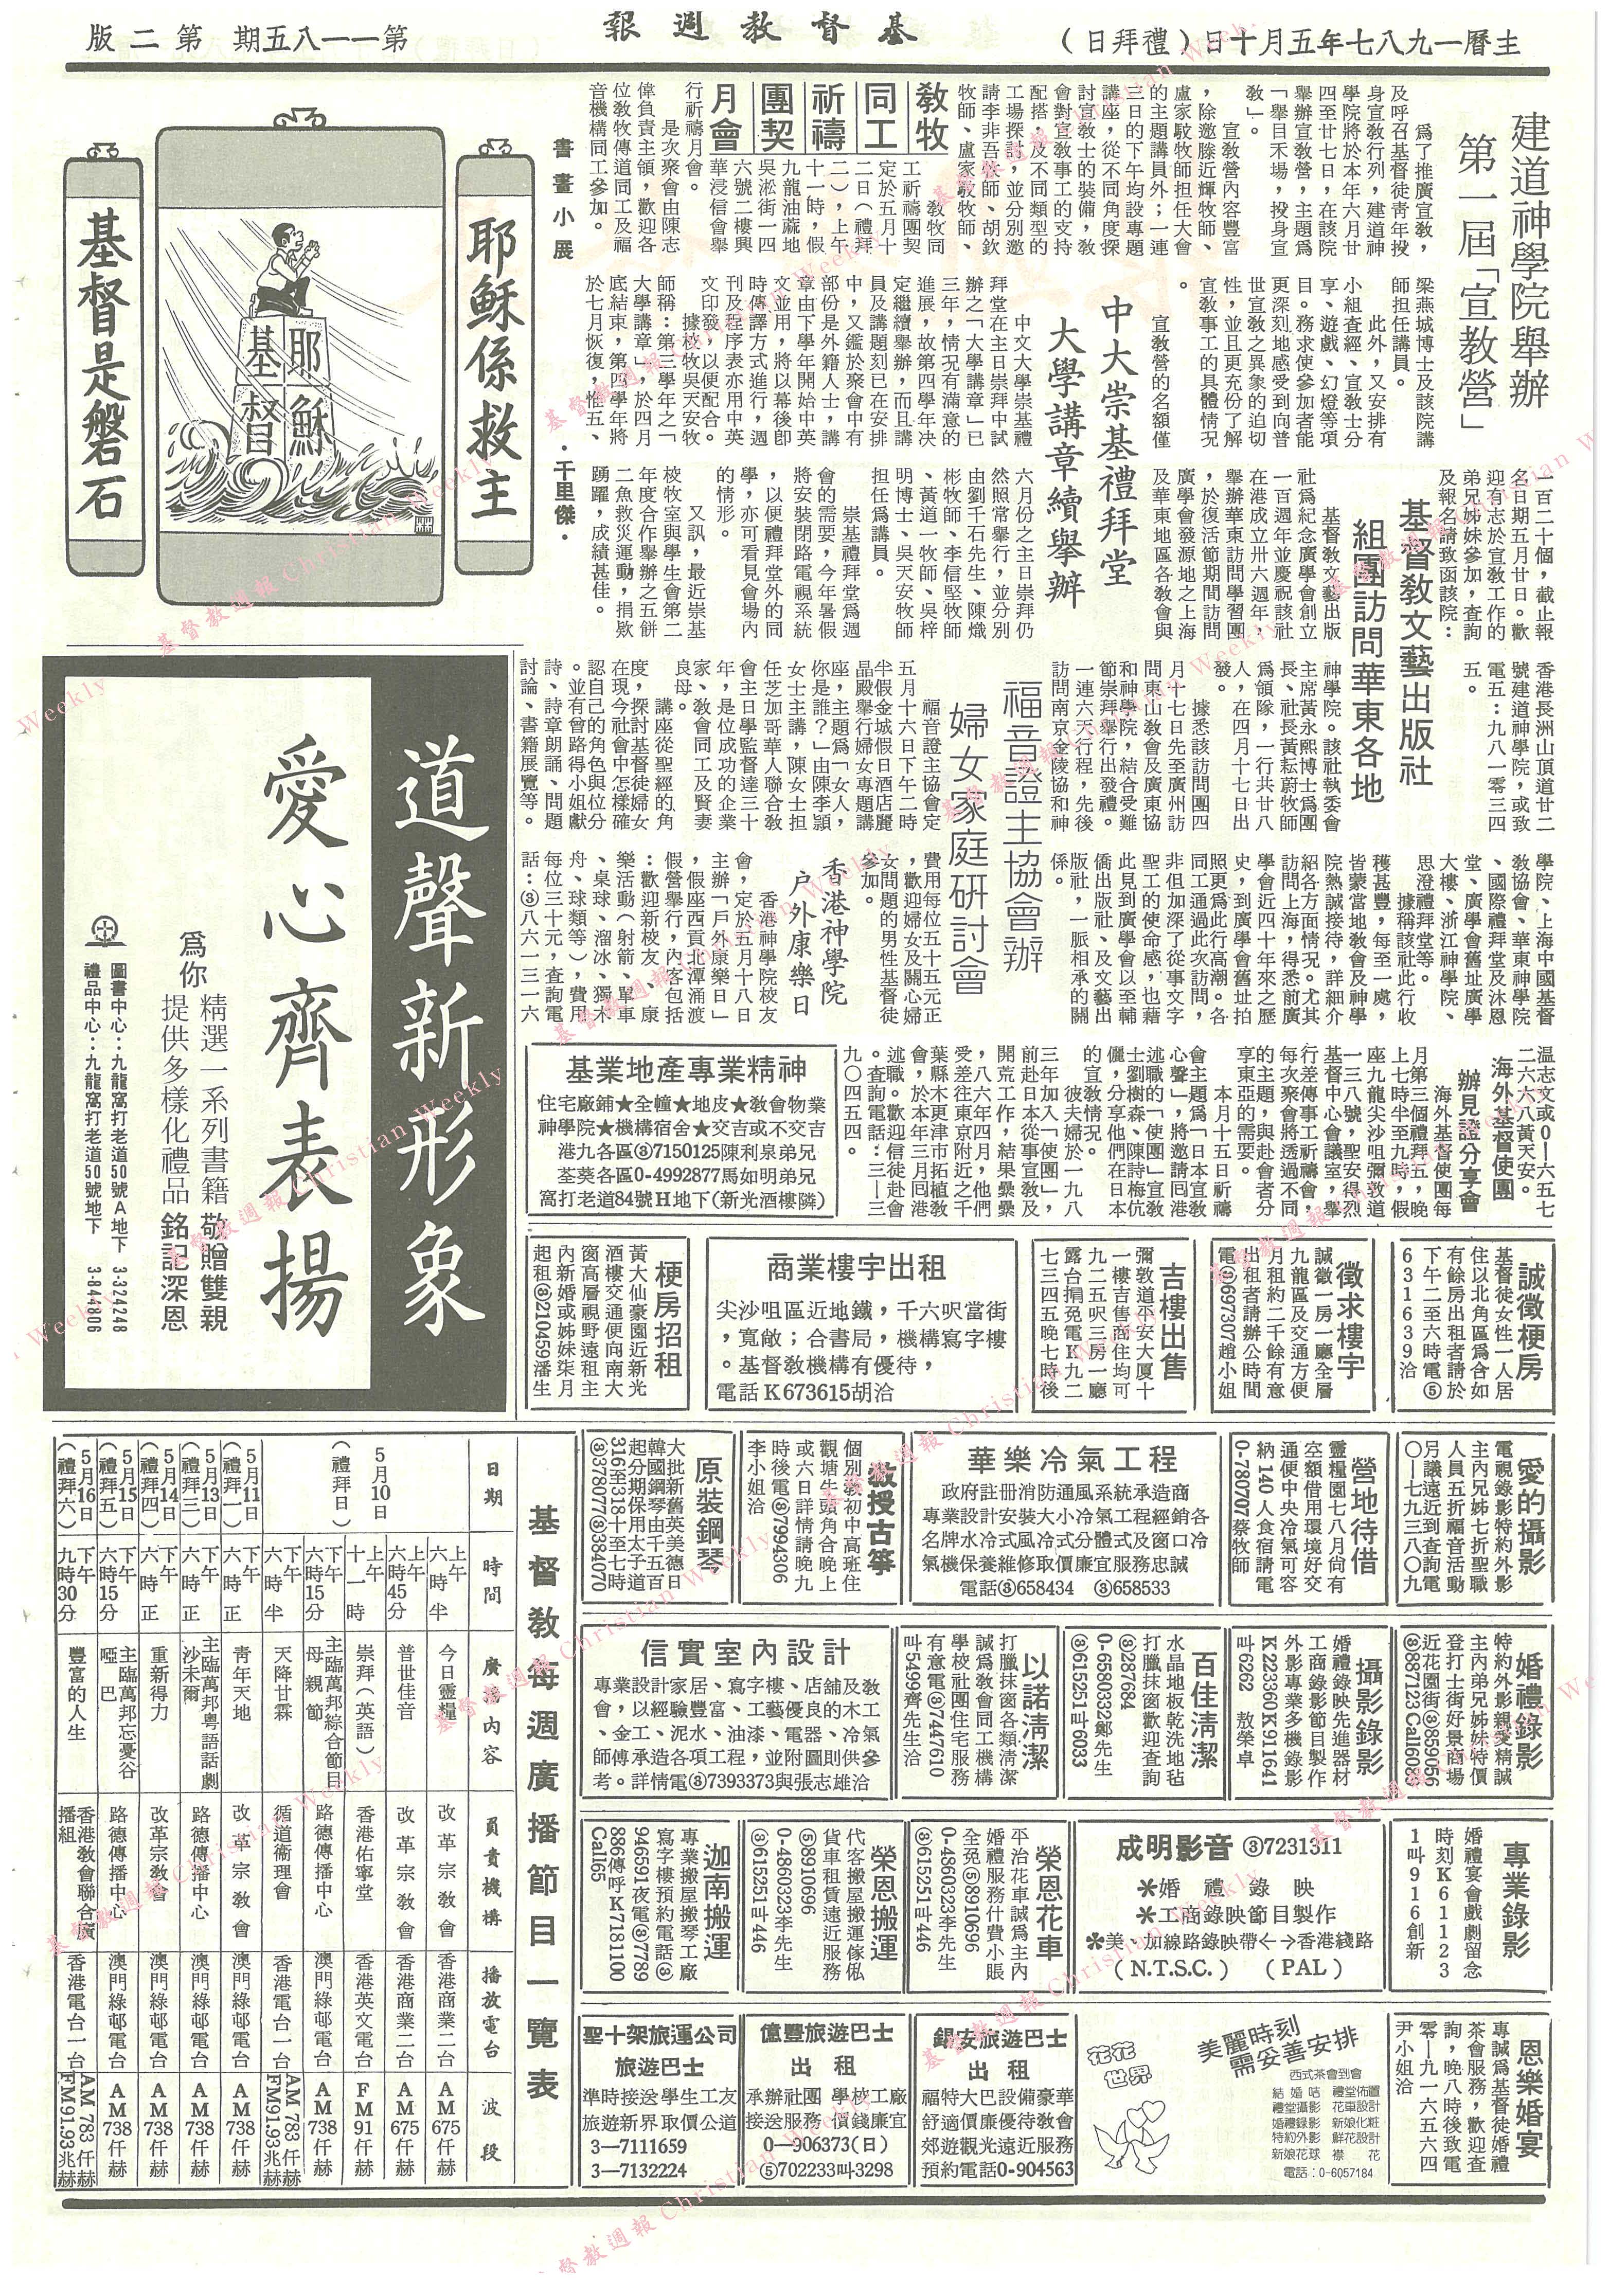 主曆一九八七年五月十日（禮拜日）
基督教週報
第一一八五期　第二版
建道神學院舉辦
第一屆「宣教營」
為了推廣宣教，
及呼召基督徒靑年投
身宣教行列，建道神
學院將於本年六月廿
四至廿七日，在該院
舉辦宣教營，主題為
「舉目禾場，投身宣
教」。
宣教營內容豐富
，除邀滕近輝牧師、
盧家馼牧師担任大會
的主題講員外；一連
三日的下午均設專題
講座，從不同角度探
討宣教士的裝備，教
會對宣教事工的支持
配搭，及不同類型的
工場探討，並分別邀
請李非吾牧師、胡欽
牧師、盧家馼牧師、
梁燕城博士及該院講
師担任講員。
此外，又安排有
小組查經、宣教士分
享、遊戲、幻燈等項
目。務求使參加者能
更深刻地感受到向普
世宣教之異象的迫切
性，並且更充份了解
宣教事工的具體情況
。
宣教營的名額僅
一百二十個，截止報
名日期五月廿日。歡
迎有志於宣教工作的
弟兄姊妹參加，查詢
及報名請致函該院：
香港長洲山頂道廿二
號建道神學院，或致
電五：九八一零三四
五。
教牧同工祈禱團契月會
教牧同
工祈禱團契
定於五月十
二日（禮拜
二），上午
十一時，假
九龍油蔴地
吳淞街一四
六號二樓興
華浸信會舉
行祈禱月會。
是次聚會由陳志
偉負責主領，歡迎各
位教牧傳道同工及福
音機構同工參加。
中大崇基禮拜堂
大學講章續舉辦
中文大學崇基禮
拜堂在主日崇拜中試
辦之「大學講章」已
三年，情況有滿意的
進展，故第四學年决
定繼續舉辦，而且講
員及講題刻已在安排
中，又鑑於聚會中有
部份是外籍人士，講
章由下學年開始中英
文並用，將以幕後卽
時傳譯方式進行，週
刊及程序表亦用中英
文印發，以便配合。
據校牧吳天安牧
師稱：第三學年之「
大學講章」，於四月
底結束，第四學年將
於七月恢復，惟五、
六月份之主日崇拜仍
然照常舉行，並分別
由劉千石先生、陳熾
彬牧師、李信堅牧師
、黃道一牧師、吳梓
明博士、吳天安牧師
担任為講員。
崇基禮拜堂為週
會的需要，今年暑假
將安裝閉路電視系統
，以便禮拜堂外的同
學，亦可看見會場內
的情形。
又訊，最近崇基
校牧室與學生會第二
年度合作舉辦之五餅
二魚救災運動，捐欵
踴躍，成績甚佳。
書畫小展
·千里傑·
耶穌係救主
耶穌基督
基督是磐石
基督教文藝出版社
組團訪問華東各地
基督教文藝出版
社為紀念廣學會創立
一百週年並慶祝該社
在港成立卅六週年，
舉辦華東訪問學習團
，於復活節期間訪問
廣學會發源地之上海
及華東地區各教會與
神學院。該社執委會
主席黃永熙博士為團
長、社長黃耘蔚牧師
為領隊，一行共廿八
人，在四月十七日出
發。
據悉該訪問團四
月十七日先至廣州訪
問東山教會及廣東協
和神學院，結合受難
節崇拜舉行出發禮。
一連六天行程，先後
訪問南京金陵協和神
學院、上海中國基督
教協會、華東神學院
、國際禮拜堂及沐恩
堂、廣學會舊址廣學
大樓、浙江神學院、
思澄禮拜堂等。
據稱該社此行收
穫甚豐，每至一處，
皆蒙當地教會及神學
院熱誠接待，詳細介
紹各方面情况。尤其
訪問上海，得悉前廣
學會近四十年來之歷
史，到廣學會舊址拍
照更為此行高潮。各
同工通過此次訪問，
非但加深了從事文字
聖工的使命感，也藉
此見到廣學會以至輔
僑出版社、及文藝出
版社，一脈相承的關
係。
福音證主協會辦
婦女家庭研討會
福音證主協會定
五月十六日下午二時
半假金城假日酒店麗
晶殿舉行婦女專題講
座，主題為「女人，
你是誰？」由陳李穎
女士主講，陳女士担
任芝加哥華人聯合教
會主日學監督達三十
年，是位成功的企業
家、教會同工及賢妻
良母。
講座從聖經的角
度，探討基督徒婦女
在現今社會中怎樣確
認自己的角色與位分
。並有曾路得小姐獻
詩、詩章朗誦、問題
討論、書籍展覽等。
費用每位五十五元正
，歡迎婦女及關心婦
女問題的男性基督徒
參加。
香港神學院
户外康樂日
香港神學院校友
會，定於五月十八日
主辦「戶外康樂日」
，假座西貢北潭涌渡
假營舉行，內客包括
：歡迎新校友、康
樂活動（射箭、單車
、桌球、溜冰、獨木
舟、球類等），費用
每位三十元，查詢電
話：③八六一三一六
海外基督使團
辦見證分享會
海外基督使團每
月第三個禮拜五，晚
上七時半至九時，假
座九龍尖沙咀彌敦道
一三八號，聖安得烈
基督中心會議室，舉
行差傳事工祈禱會，
每次聚會將透過不同
的主題，與赴會者分
享東亞的需要。
本月十五日祈禱
會主題為「日本宣教
心聲」，將邀請囘港
述職的「使團」宣教
士劉樹森、陳詩梅伉
儷，分享他們在日本
的宣教情况。
彼夫婦於一九八
三年加入「使團」，
前赴日本從事宣教及
開荒工作，結果纍纍
，八六年四月，他們
受差往東京附近之千
葉縣木更津市拓植教
會，於本年三月囘港
述職。歡迎信徒赴會
。查詢電話：三—三
九〇四五四
温志文或0—六五七
二六六八黃天安。
道聲新形象
愛心齊表揚
為你
精選一系列書籍　敬贈雙親
提供多樣化禮品　銘記深恩
圖書中心：九龍窩打老道50號A地下　3-324248
禮品中心：九龍窩打老道50號地下　3-844806
基業地產專業精神
住宅廠鋪★全幢★地皮★教會物業
神學院★機構宿舍★交吉或不交吉
港九各區③7150125陳利泉弟兄
荃葵各區0-4992877馬如明弟兄
窩打老道84號H地下(新光酒樓隣)
誠徵梗房
基督徒女性一人居
住以北角區為合如
有餘房出租者請於
下午二至六時電⑤
6316639洽
徵求樓宇
誠徵一房一廳全層
九龍區及交通方便
月租約二千餘有意
出租者請辦公時間
電③697307趙小姐
吉樓出售
彌敦道平安大厦十
一樓吉售商住均可
九二五呎三房一廳
露台捐免電K九二
七三四五晚七時後
商業樓宇出租
尖沙咀區近地鐵，千六呎當街
，寬敞；合書局，機構寫字樓
。基督教機構有優待，
電話K673615胡洽
梗房招租
黃大仙豪園近新光
酒樓交通便向南大
窗高層視野遠租主
內新婚或姊妹柒月
起租③210459潘生
愛的攝影
電視錄影特約外影
主內兄姊七折聖職
人員五折福音活動
另議遠近到查詢電
〇—七九三八〇九
營地待借
靈糧園七八月尙有
空額借用環境好交
通便中央冷氣可容
納140人食宿請電
0-780707蔡牧師
華樂冷氣工程
政府註册消防通風系統承造商
專業設計安裝大小冷氣工程經銷各
名牌水冷式風冷分體式及窗口冷
氣機保養維修取價廉宜服務忠誠
電話③658434　③658533
教授古箏
個別教初中高班住
觀塘牛頭角合晚上
或六日詳情請晚九
時後電③7994306
李小姐洽
原裝鋼琴
大批新舊英美德日
韓國鋼琴由千五百
起分期保用太子道
316至318十至七時
③378077③384070
婚禮錄影
特約外影親愛精誠
主內弟兄姊妹特價
登打士街好景商場
近花園街③859056
③887123Call6083
攝影錄影
婚禮錄映先進器材
工商錄影節目製作
外影專業多機錄影
K223360K911641
叫6262　敖榮卓
百佳淸潔
水晶地板乾洗地毡
打臘抹窗歡迎查詢
③287684
0-6580332鄭先生
③615251叫6033
以諾淸潔
打臘抹窗各類淸潔
誠為教會同工機構
學校社團住宅服務
有意電③7447610
叫5499齊先生洽
信實室內設計
專業設計家居、寫字樓、店舖及教
會，以經驗豐富、工藝優良的木工
、金工、泥水、油漆、電器、冷氣
師傅承造各項工程，並附圖則供參
考。詳情電③7393373與張志雄洽
專業錄影
婚禮宴會戲劇留念
時刻K61123
1叫916創新
成明影音 ③7231311
＊婚禮錄映
＊工商錄映節目製作
＊美、加線路錄映帶←→香港綫路
（N.T.S.C.）　（PAL）
榮恩花車
平治花車誠為主內
婚禮服務什費小賬
全免⑤8910696
0-4860323李先生
③615251叫446
榮恩搬運
代客搬屋搬運傢俬
貨車租賃遠近服務
⑤8910696
0-4860323李先生
③615251叫446
迦南搬運
專業搬屋搬琴工廠
寫字樓預約電話③
946691夜電③7789
886傳呼K7181100
Call65
恩樂婚宴
專誠為基督徒婚禮
茶會服務，歡迎查
詢，晚八時後致電
零—九一六五六四
尹小姐洽
美麗時刻
需妥善安排
花花世界
西式茶會到會
結婚咭　禮堂佈置
禮堂攝影　花車設計
婚禮錄影　新娘化粧
特約外影　鮮花設計
新娘花球　襟花
電話：0-6057184
銀安旅遊巴士
出租
福特大巴設備豪華
舒適價廉優待教會
郊遊觀光遠近服務
預約電話0-904563
億豐旅遊巴士
出租
承辦社團 學校工廠
接送服務 價錢廉宜
0—906373(日)
⑤702233叫3298
聖十架旅運公司
旅遊巴士
準時接送學生工友
旅遊新界取價公道
3—7111659
3—7132224
基督教每週廣播節目一覽表
日期　時間　廣播內容　負責機構　播放電台　波段
5月10日（禮拜日）　上午六時半　今日靈糧　改革宗教會　香港商業二台　AM 675仟赫
上午六時45分　普世佳音　改革宗教會　香港商業二台　AM 675仟赫
上午十一時　崇拜（英語）　香港佑寧堂　香港英文電台　FM 91仟赫
下午六時15分　主臨萬邦綜合節目 母親節　路德傳播中心　澳門綠邨電台　AM 738仟赫
下午六時半　天降甘霖　循道衞理會　香港電台一台　AM 783 仟赫 FM91.93兆赫
5月11日（禮拜一）　下午六時正　靑年天地　改革宗教會　澳門綠邨電台　AM 738仟赫
5月13日（禮拜三）　下午六時正　主臨萬邦粵語話劇 沙未爾　路德傳播中心　澳門綠邨電台　AM 738仟赫
5月14日（禮拜四）　下午六時正　重新得力　改革宗教會　澳門綠邨電台　AM 738仟赫
5月15日（禮拜五）　下午六時15分　主臨萬邦忘憂谷 啞巴　路德傳播中心　澳門綠邨電台　AM 738仟赫
5月16日（禮拜六）　下午九時30分　豐富的人生　香港教會聯合廣播組　香港電台一台　AM 783 仟赫 FM91.93兆赫
基督教週報 Christian Weekly